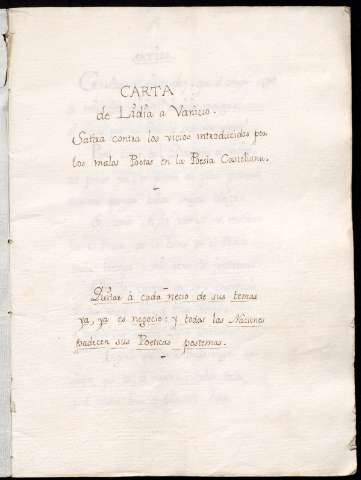 CARTA
de Lidia a Vanicio.
Satira contra los vicios introducidos por
los malos Poetas en la Poesia Castellana.
à cada necio de sus temas
ya, ya es negocio: y todas las Naciones
padecen sus Poeticas postemas.